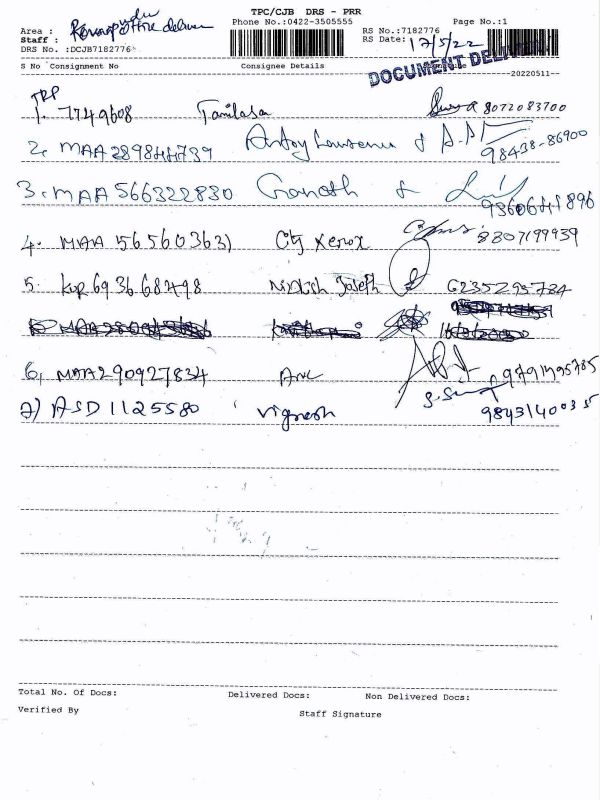 TPC/CJB DRS - PRR
Phone No.:0422-3505555 Page No.:1
Area :
Staff : office deliver
DRS No. :DCJB7182776
RS No.:7182776
RS Date: 17/5/22
DOCUMENT DELIVER
S No Consignment No Consignee Details
20220511
TRP
1. 7749608 Tamilasa 8072083700
2. MAA 289844739 Antoy Lawrence 98438-86900
3. MAA 566322830 Ganesh 9360641896
4. MAA 156560363) City Xerox 8807199939
5. KUP 693668498 Joseph 6235295784
6. MAA 290927834
7) ASD 1125580 Vignesh 9843140035
Total No. Of Docs: Delivered Docs: Non Delivered Docs:
Verified By Staff Signature